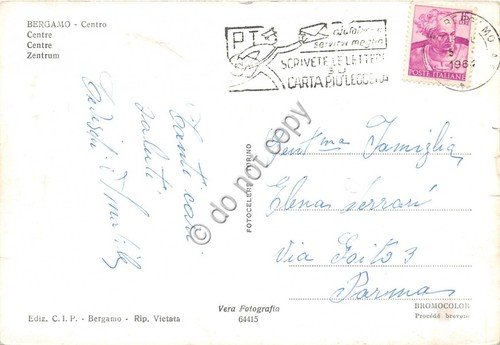 BERGAMO - Centro
Centre
Centre
Zentrum
PT
aiutateci a
servirvi meglio
SCRIVETE LE LETTERE
SU
CARTA PIÙ LEGGERA
BERGAMO
196
POSTE ITALIANE
Tanti cari
saluti
Gent.ma Famiglia
Elena Ferrari
Via Goito 3
Parma
© do not copy
FOTOCELERE TORINO
Vera Fotografia
64415
Ediz. C. I. P. - Bergamo - Rip. Vietata
BROMOCOLOR
Procédé breveté